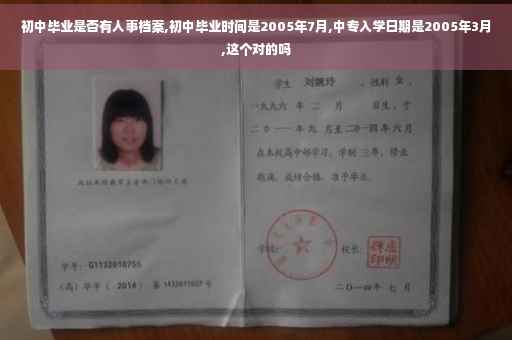 初中毕业是否有人事档案,初中毕业时间是2005年7月,中专入学日期是2005年3月
,这个对的吗
学生 刘婉玲 ，性别 女 ，
一九九六 年 二 月 日生，于
二〇一一年九 月至二〇一四年 六 月
在本校高中部学习，学制 三年，修业
期满，成绩合格，准予毕业。
学号：G1132010755
（高）毕字（ 2014 ）第 1432011007 号
学校：
校长：
二〇一四年 七 月